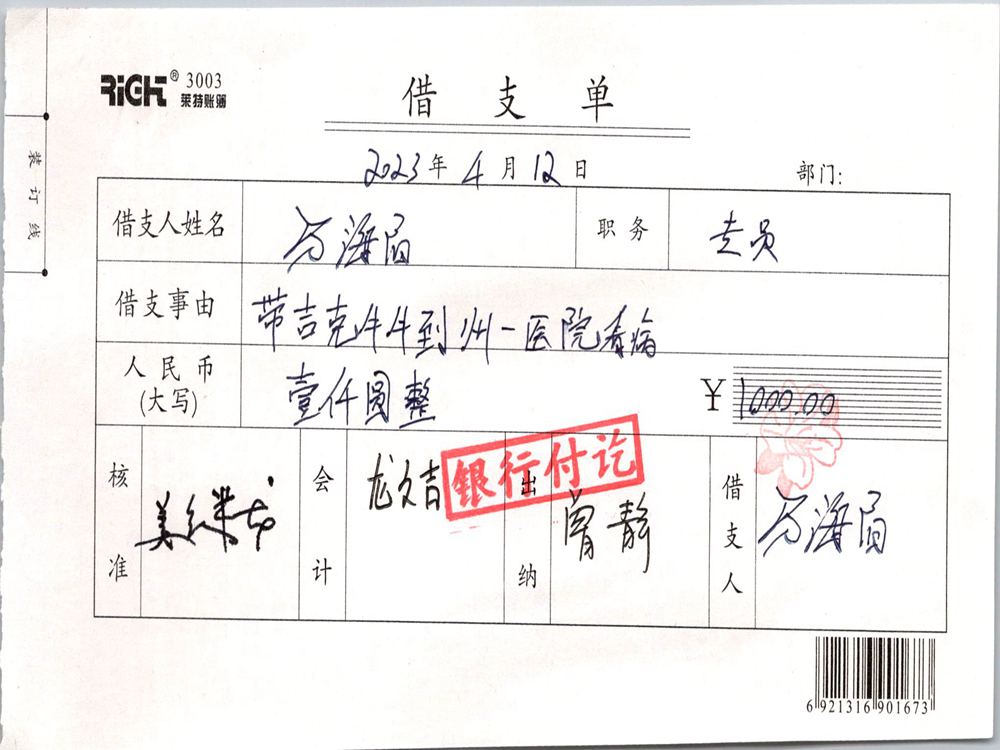 RiGHT® 3003
莱特账簿
借支单
2023年4月12日 部门:
装订线
借支人姓名 万海眉 职务 专员
借支事由 带吉克牛牛到州一医院看病
人民币(大写) 壹仟圆整 ¥1000.00
核准 会计 龙文吉 出纳 曾静 借支人 万海眉
银行付讫
6 921316 901673